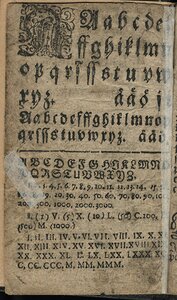 Aabcde
ffghiklmn
opqrſsstuvw
xyz. åäö
Aabcdefffghiklmno
qrſsstuvwxyz. åäö
ABCDEFGHIKLMN
OPQRSTUVWXYZ.
1. 2. 3. 4. 5. 6. 7. 8. 9. 10. 11. 12. 13. 14. 15.
20. 30. 40. 50. 60. 70. 80. 90. 10
200. 300. 1000. 2000. 3000.
I. (1) V. (5) X. (10) L. (50) C. 100.
500) M. (1000)
I. II. III. IV. V. VI. VII. VIII. IX. X. X
XII XIII XIV. XV. XVI. XVII. XVIII XIX
XX. XXX. XL. L. LX. LXX. LXXX XC
C, CC. CCC, M, MM, MMM,